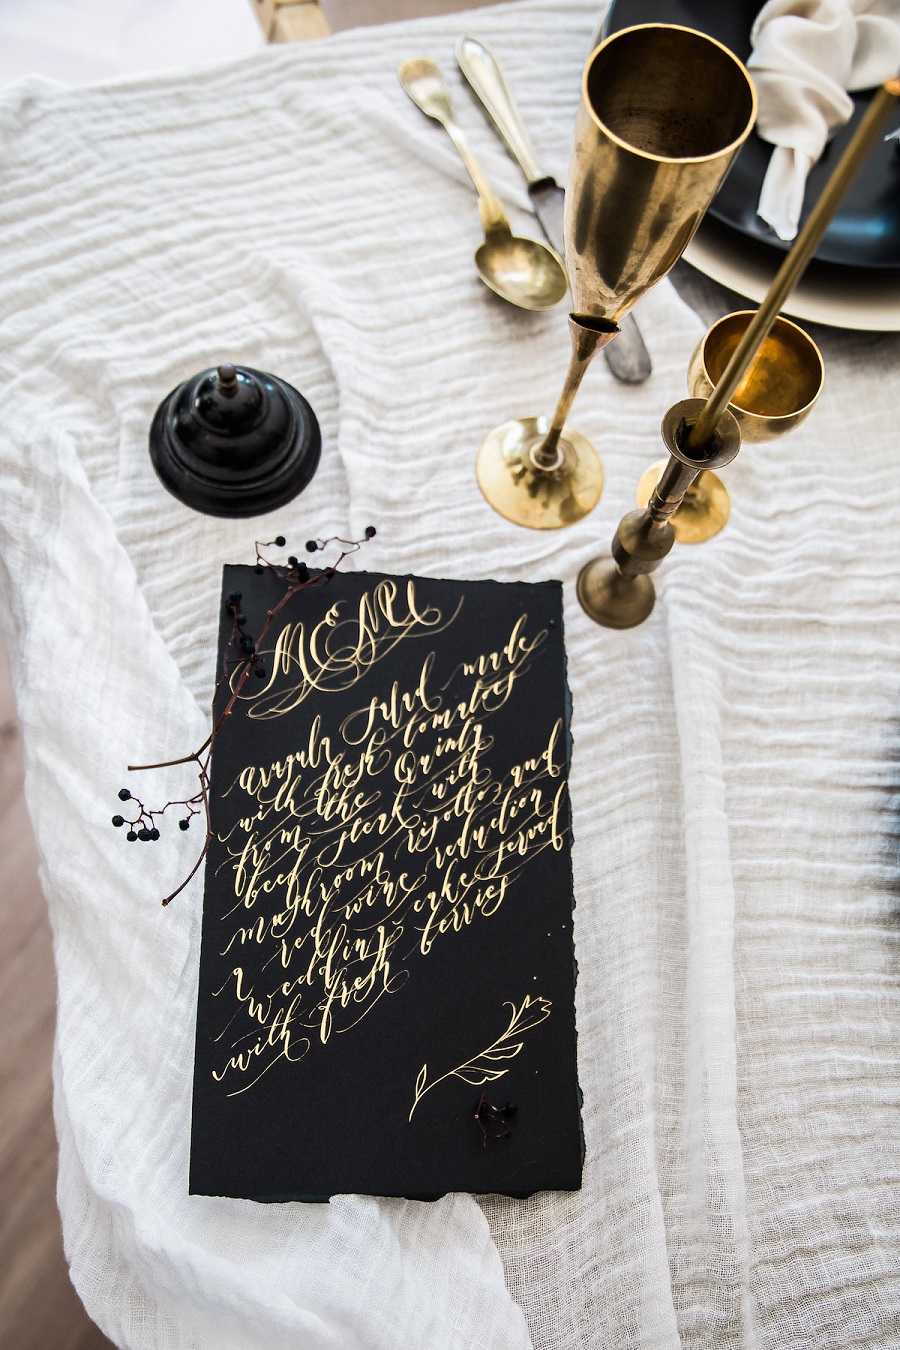 MENU
arugula salad made
with fresh tomatoes
from the Quinta
beef steak with
mushroom risotto and
a red wine reduction
wedding cake served
with fresh berries